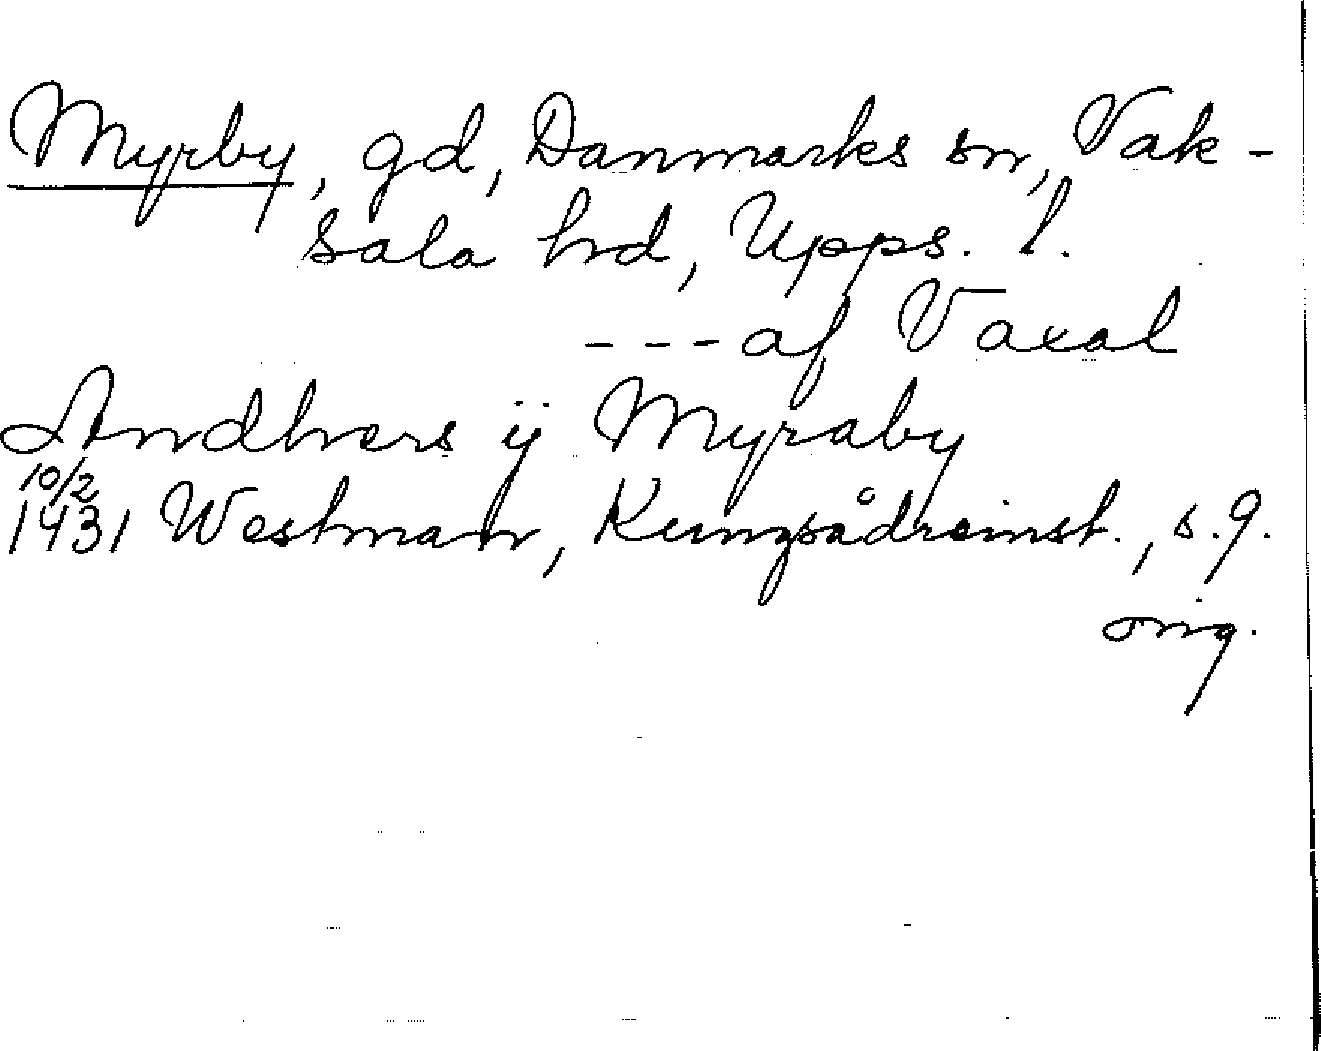 Myrby, gd, Danmarks sn, Vak-
sala hd, Upps. l.
---af Vaxal
Andhers ÿ Myraby
10/2
1431 Westman, Kungsådreinst., s. 9.
orig.